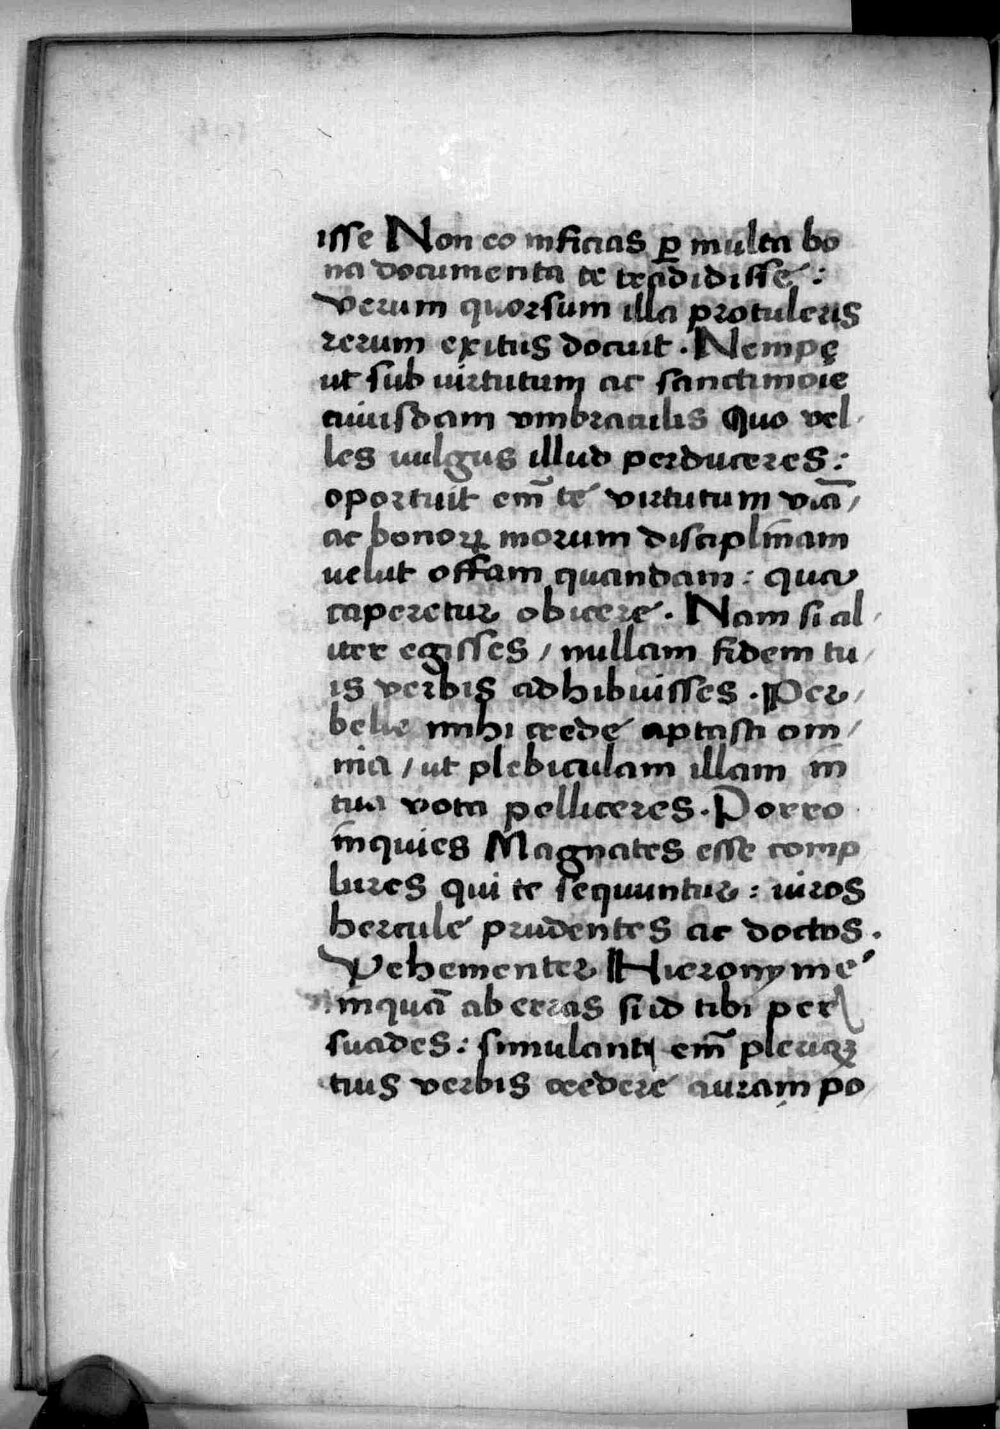 isse Non eo inficias ꝑ multa bo
na documenta te tradidisse :
Verum quorsum illa protuleris
rerum exitus docuit . Nempę
ut sub uirtutum ac sanctimoĩe
cuiusdam vmbraculis Quo vel-
les uulgus illud perduceres :
oportuit em̃ te virtutum viã /
ac bonoꝝ morum disciplinam
uelut offam quandam : qua
caperetur obicere . Nam si al-
iter egisses / nullam fidem tu/
is verbis adhibuisses . Per/
belle mihi crede aptasti om/
nia / ut plebiculam illam in
tua vota pelliceres . Porro
inquies Magnates esse comp
lures qui te sequuntur : uiros
hercule prudentes ac doctos .
Vehementer Hieronyme
inquã ab erras si id tibi per
suades : simulant em̃ pleriqꝫ
tuis verbis credere auram po/